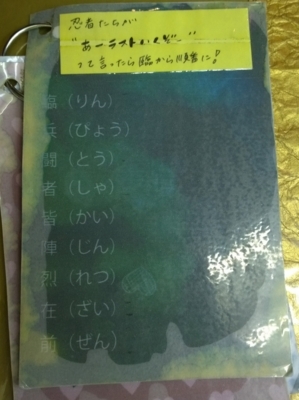 忍者たちが
"あーラストいくぞー"
って言ったら臨から順番に!
臨（りん）
兵（びょう）
闘（とう）
者（しゃ）
皆（かい）
陣（じん）
烈（れつ）
在（ざい）
前（ぜん）